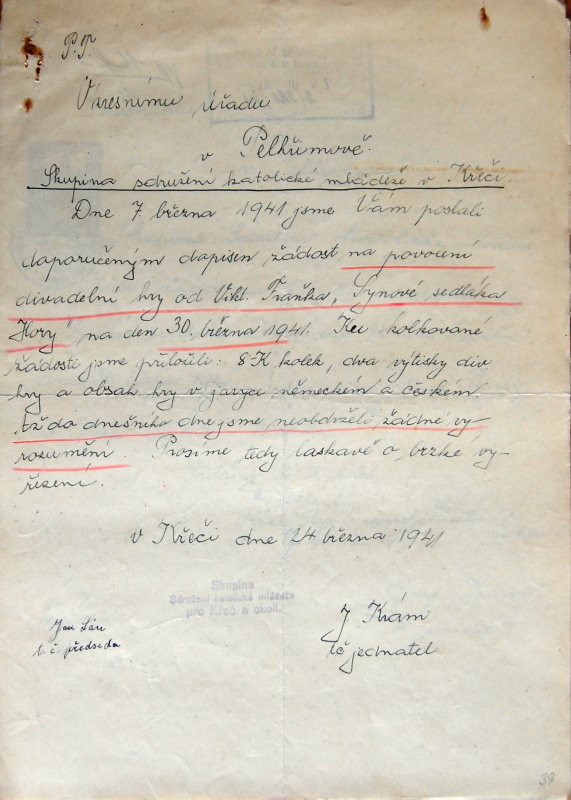 P.T.
Váresnímu úřadu
v Pelhřimově.
Skupina sdružení katolické mládeže v Křeči.
Dne 7 března 1941 jsme Vám poslali
doporučeným dopisem žádost na povolení
divadelní hry od Vikt. Fraňka, Synové sedláka
Hory" na den 30. března 1941. Ku kolkované
žádosti jsme přiložili: 8 K kolek, dva výtisky div.
hry a obsah hry v jazyce německém a českém
Až do dnešního dne jsme neobdrželi žádné vy-
rozumění. Prosíme tedy laskavě o brzké vy-
řízení.
v Křeči dne 24 března 1941
Skupina
Sdružení katolické mládeže
pro Křeč a okolí.
Jan
t. č. předseda
J. Krám
tč jednatel
39